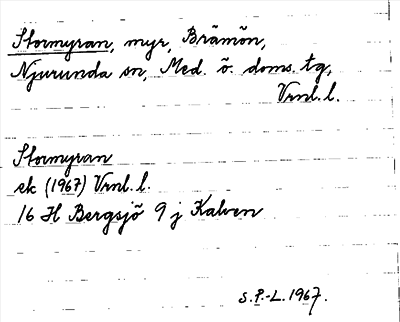 Stormyran, myr, Brämön,
Njurunda sn, Med. ö. doms. tg,
Vrnl. l.
Stormyran
ek (1967) Vrnl. l.
16 H Bergsjö 9 j Kalven
S. P.-L. 1967.